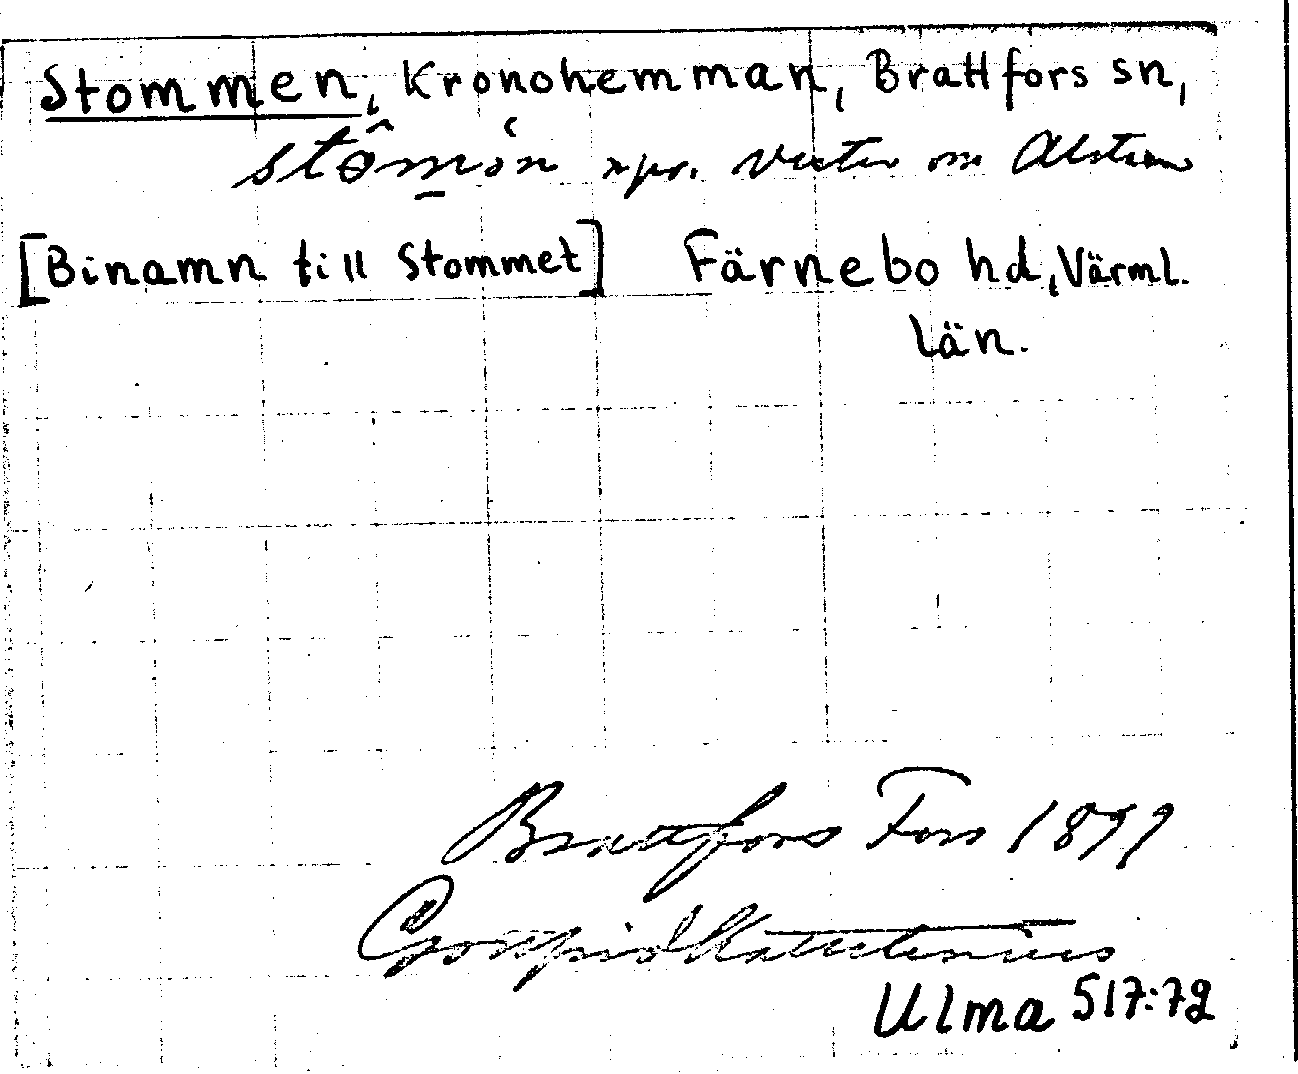 Stommen, Kronohemman, Brattfors sn,
stômə̀n npr. Väster om Alstern
[Binamn till Stommet] Färnebo hd, Värml.
län.
Brattfors Fors 1899
Gottfrid Kallstenius
Ulma 517:72